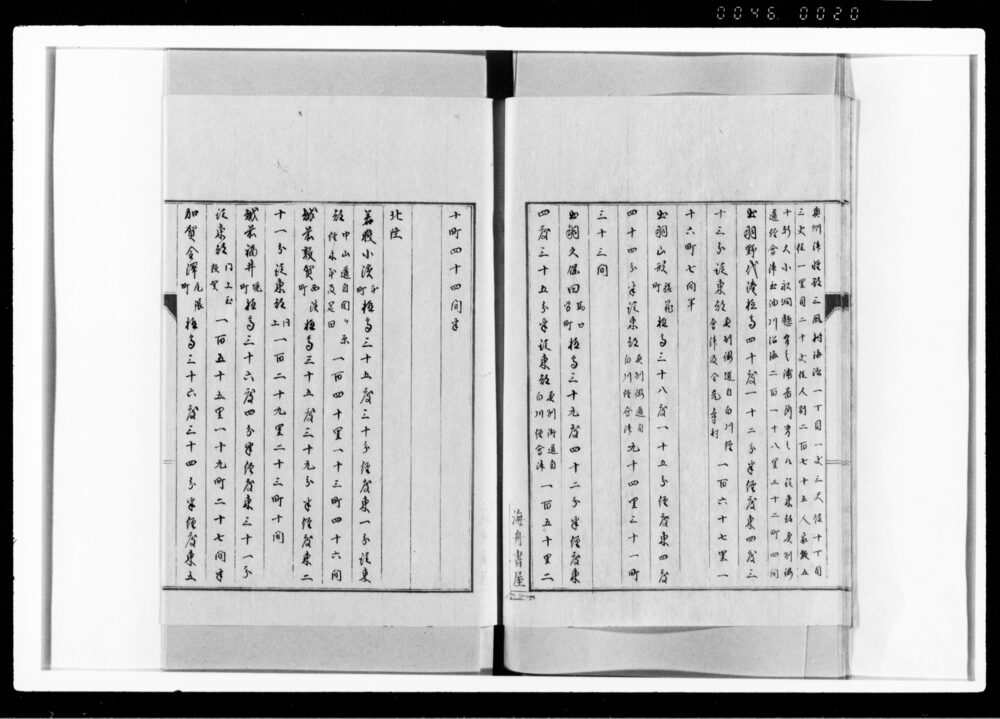 0046 0020
奥州津軽郡三厩村海浜一丁目一丈三尺位十丁目
三丈位一里目二十丈位人別二百七十五人家数五
十軒
道経会津出油川沿海二百一十八里三十二町四間
出羽野代湊極高四十度一十二分半経度東四度三
十三分従東都奥州街道自白川経
会津及金売寺村
一百六十七里一
十六町七間半
出羽山形極高三十八度一十五分経度東四度
四十四分半従東都奥州街道自
白川経会津
九十四里三十一町
三十三間
出羽久保田極高三十九度四十二分半経度東
四度三十五分半従東都奥州街道自
白川経会津
一百五十里二
海舟書屋
十町四十四間半
北陸
若狭小浜極高三十五度三十分経度東一分従東
都中山道自関ヶ原
経木本及疋田
一百四十里一十三町四十六間
越前敦賀西浜
町極高三十五度三十九分半経度東二
十一分従東都同
上一百二十九里二十三町十間
越前福井極高三十六度四分半経度東三十一分
従東都同上至
敦賀一百五十五里一十九町二十七間半
加賀金澤尾張
町極高三十六度三十四分半経度東五